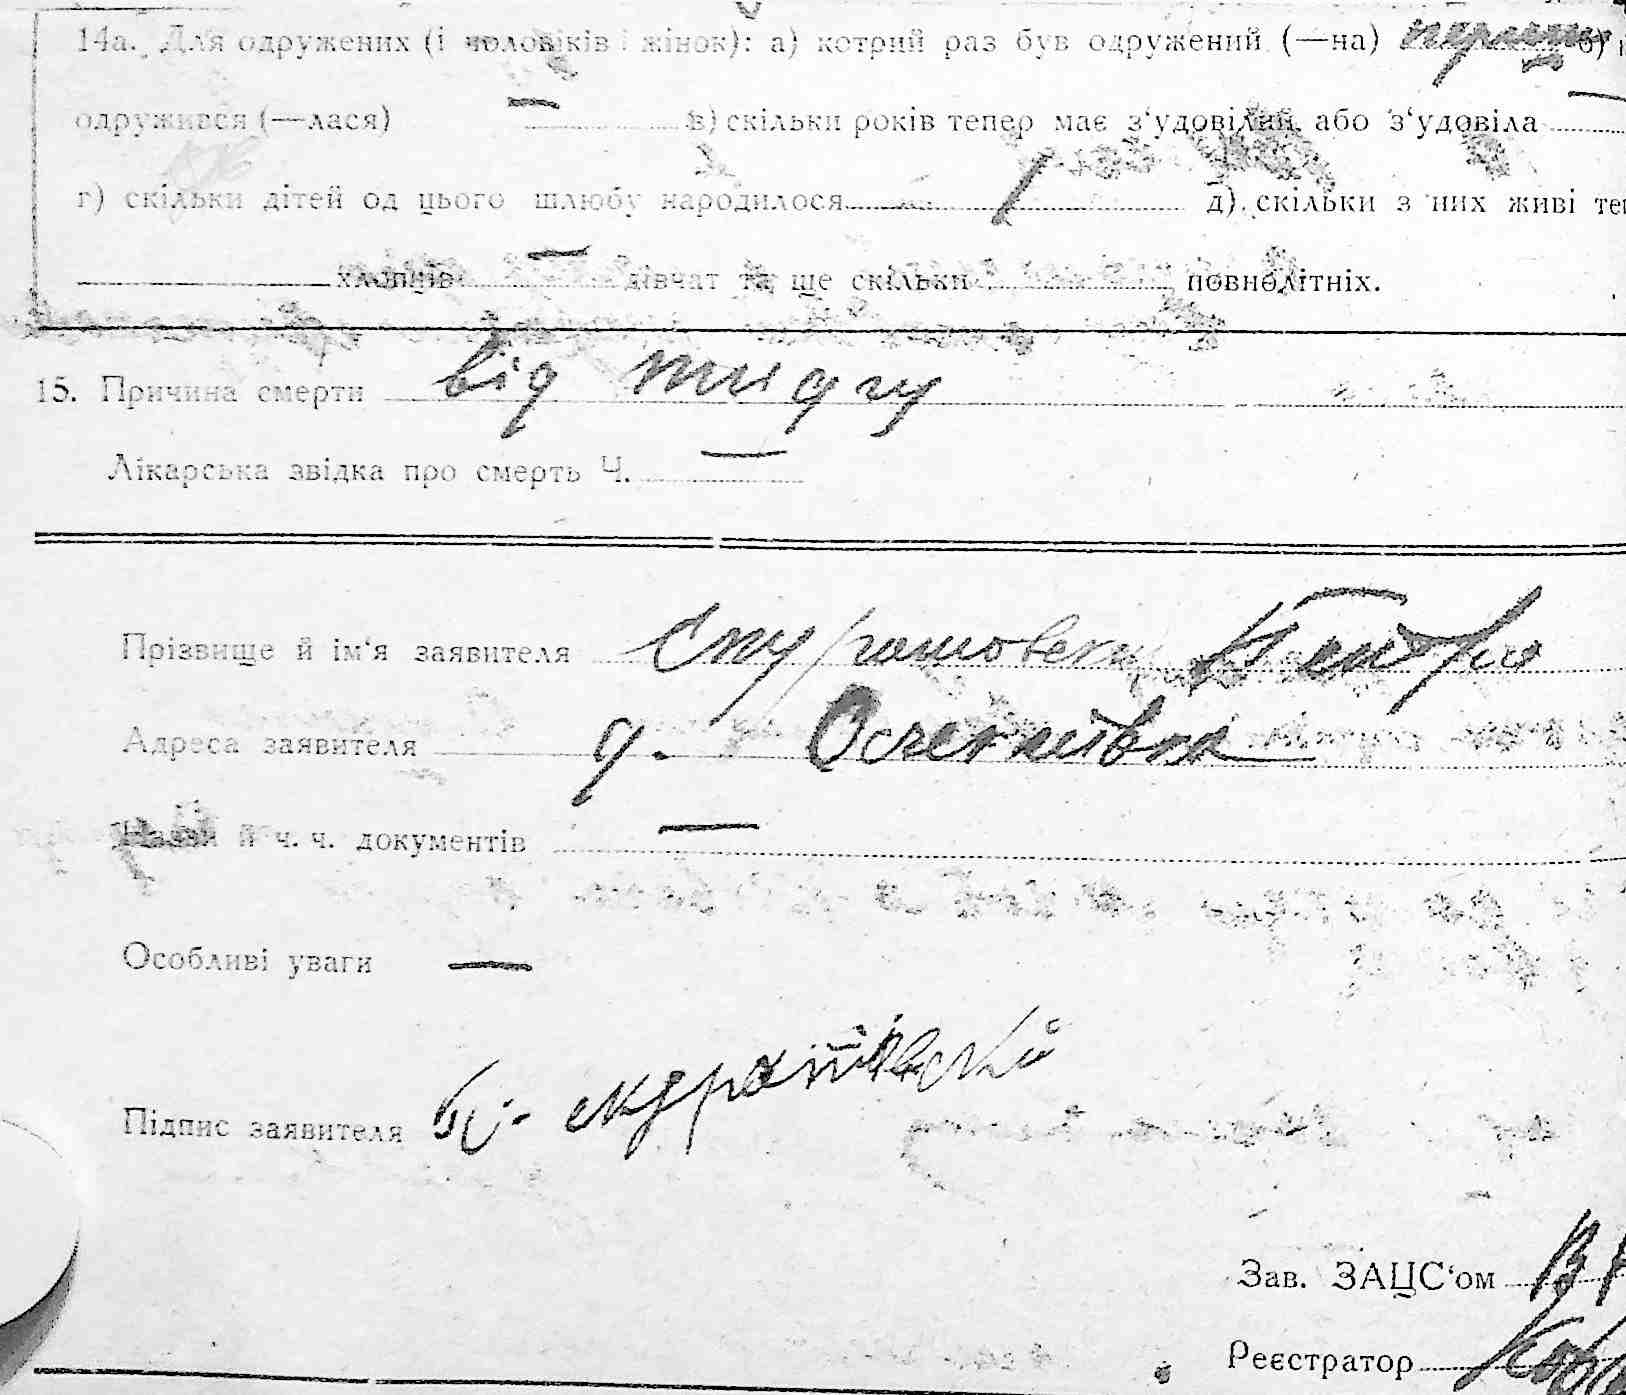 14а. Для одружених (і чоловіків і жінок): а) котрий раз був одружений (—на) перший б)
одружився (—лася) — в) скільки років тепер має з‘удовілий або з‘удовіла
г) скільки дітей од цього шлюбу народилося 1 д) скільки з них живі теп
хлопців — дівчат та ще скільки повнолітніх.
15. Причина смерти від тифу
Лікарська звідка про смерть Ч. —
Прізвище й ім‘я заявителя Петро
Адреса заявителя
Назви й ч. ч. документів —
Особливі уваги —
Підпис заявителя
Зав. ЗАЦС‘ом
Реєстратор